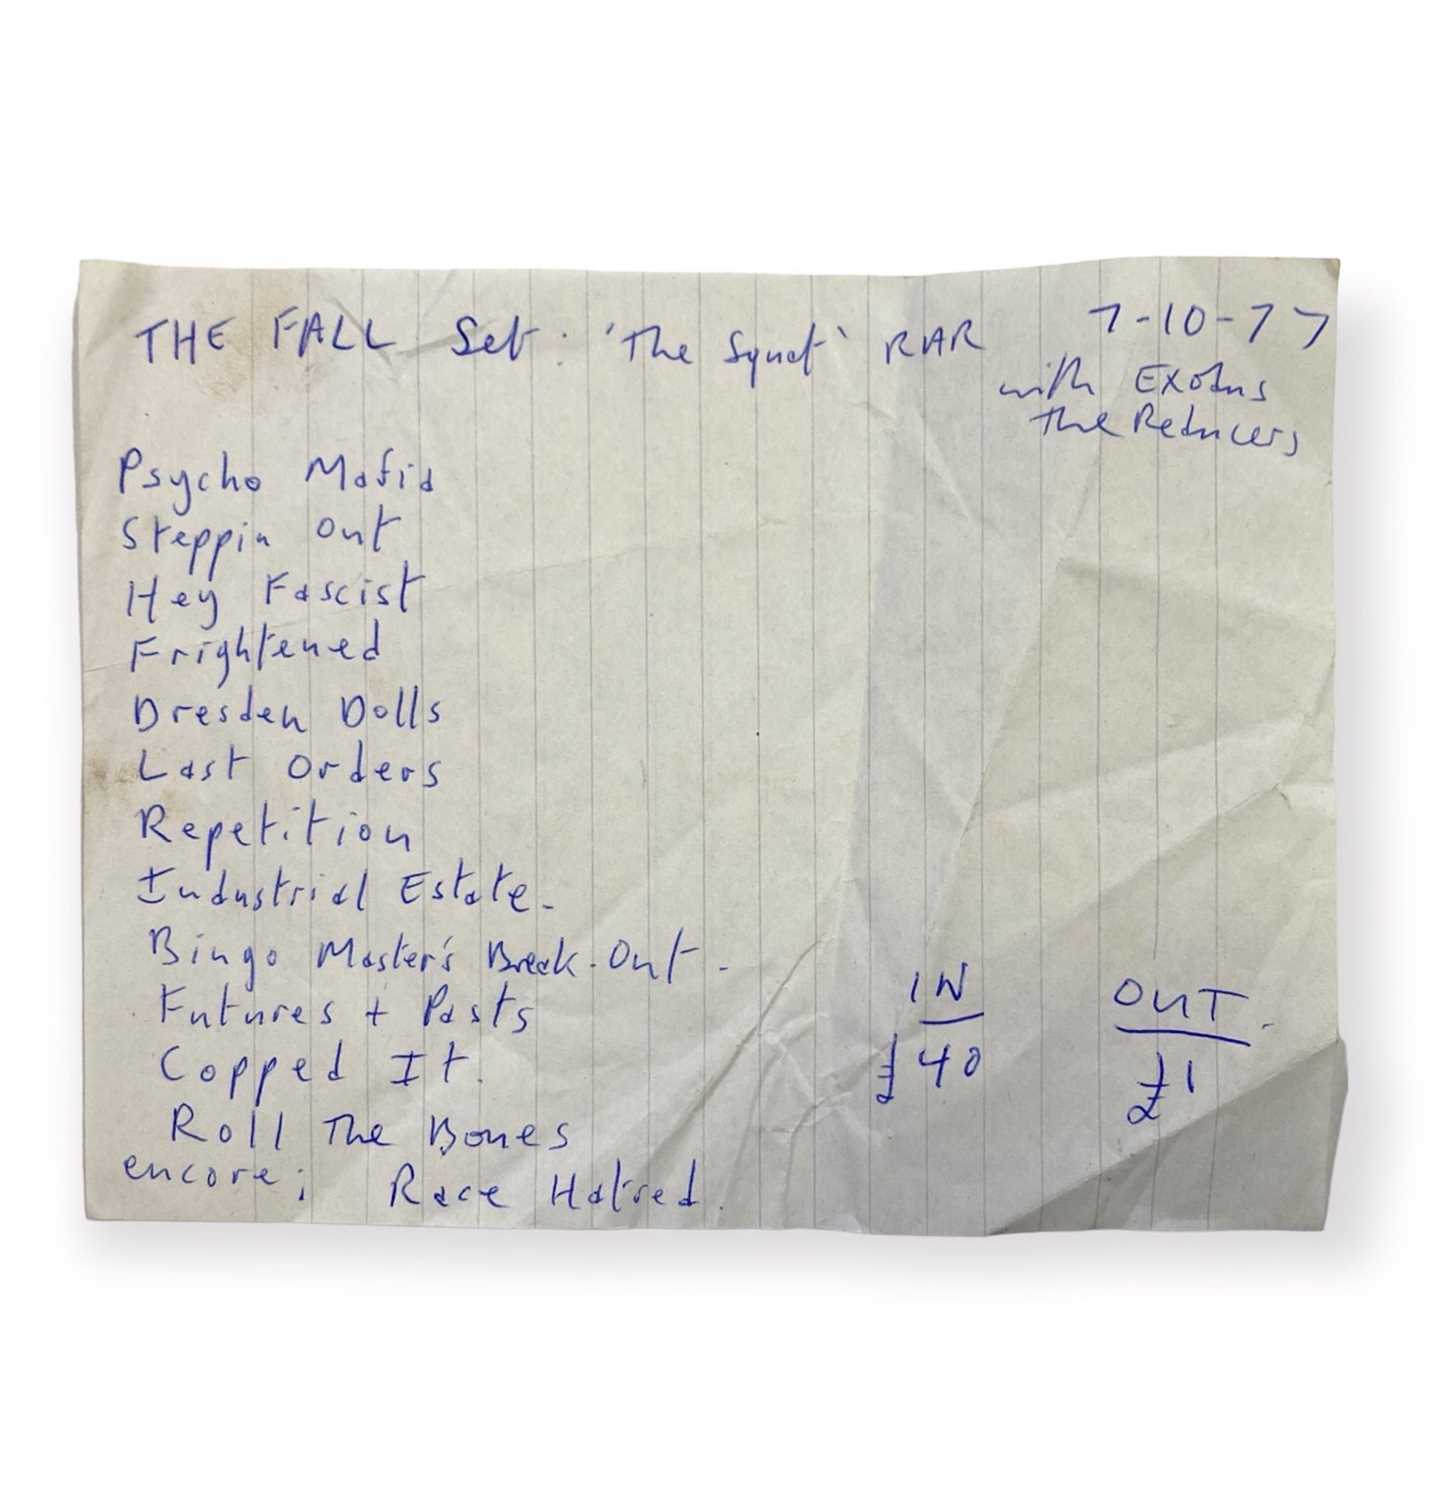 THE FALL Set: 'The Squat' RAR 7-10-77
with Exodus
the Reducers
Psycho Mafia
Steppin Out
Hey Fascist
Frightened
Dresden Dolls
Last Orders
Repetition
Industrial Estate -
Bingo Master's Break-Out -
Futures + Pasts
Copped It.
Roll The Bones
encore; Race Hatred.
IN OUT.
£40 £1